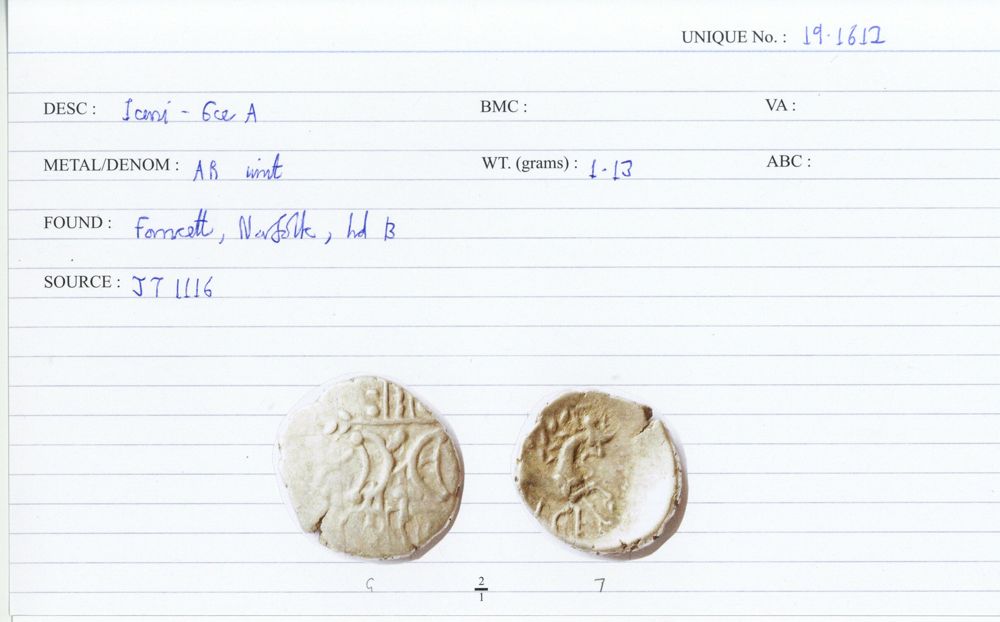 UNIQUE No. : 19.1612
DESC : Iceni - Ece A BMC : VA :
METAL/DENOM : AR unit WT. (grams) : 1.13 ABC :
FOUND : Forncett, Norfolk, hd B
SOURCE : JT 1116
2
1
7